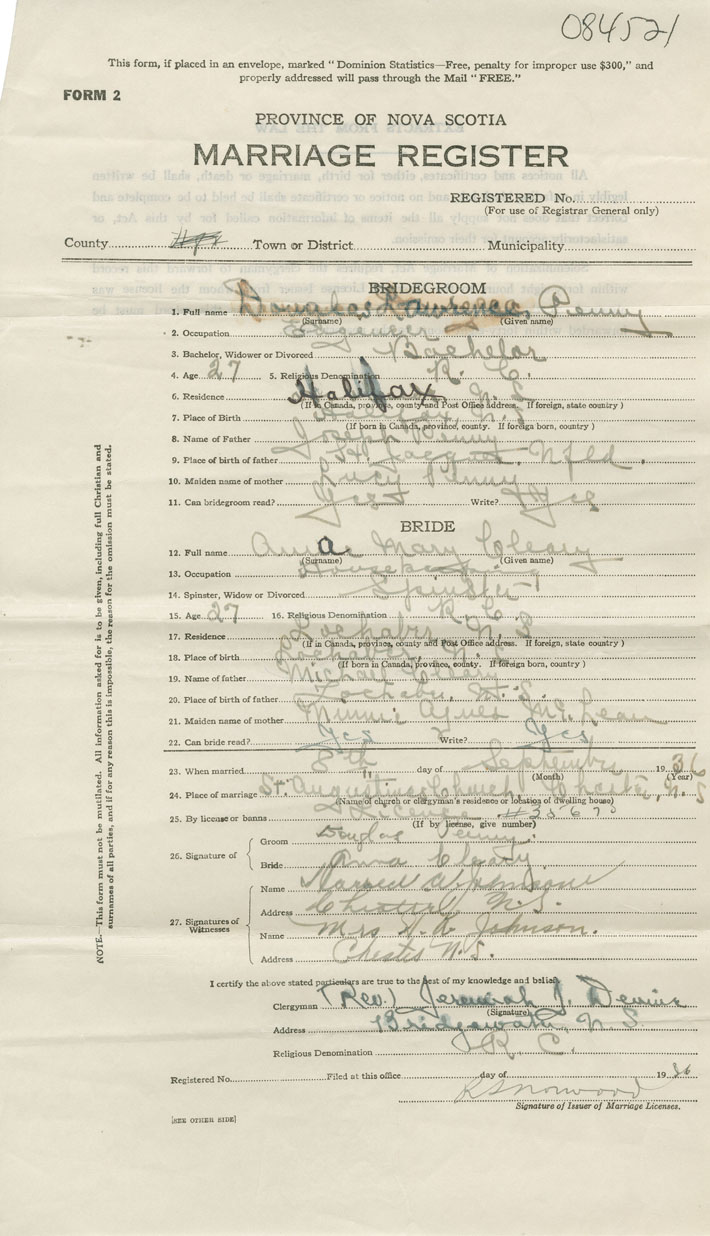 084521
This form, if placed in an envelope, marked "Dominion Statistics—Free, penalty for improper use $300," and
properly addressed will pass through the Mail "FREE."
FORM 2
PROVINCE OF NOVA SCOTIA
MARRIAGE REGISTER
REGISTERED No.
(For use of Registrar General only)
County Town or District Municipality
BRIDEGROOM
1. Full name Douglas Lawrence Penny
(Surname) (Given name)
2. Occupation Engineer
3. Bachelor, Widower or Divorced Bachelor
4. Age 27 5. Religious Denomination R. C.
6. Residence Halifax N. S.
(If in Canada, province, county and Post Office address. If foreign, state country)
7. Place of Birth Halifax, N. S.
(If born in Canada, province, county. If foreign born, country)
8. Name of Father Joseph Penny
9. Place of birth of father St. Jacques, Nfld.
10. Maiden name of mother Lucy Penny
11. Can bridegroom read? Yes Write? Yes
BRIDE
12. Full name Anna Mary Cleary
(Surname) (Given name)
13. Occupation
14. Spinster, Widow or Divorced Spinster
15. Age 27 16. Religious Denomination R. C.
17. Residence Lochaber, N. S.
(If in Canada, province, county and Post Office address. If foreign, state country)
18. Place of birth Lochaber, N. S.
(If born in Canada, province, county. If foreign born, country)
19. Name of father Michael Cleary
20. Place of birth of father Lochaber, N. S.
21. Maiden name of mother Minnie Agnes McLean
22. Can bride read? Yes Write? Yes
23. When married 8th day of September 1936
(Month) (Year)
24. Place of marriage St. Augustines Church, Chester, N. S
(Name of church or clergyman's residence or location of dwelling house)
25. By license or banns License #
(If by license, give number)
26. Signature of
Groom Douglas Penny
Bride Anna Cleary
27. Signatures of Witnesses
Name
Address Chester N. S.
Name Mrs H. R. Johnson.
Address Chester N. S.
I certify the above stated particulars are true to the best of my knowledge and belief.
Clergyman (Rev.) Jeremiah J. Devine
(Signature)
Address Bridgewater, N. S.
Religious Denomination R. C.
Registered No. Filed at this office day of 1936
Signature of Issuer of Marriage Licenses.
[SEE OTHER SIDE]
NOTE.—This form must not be mutilated. All information asked for is to be given, including full Christian and
surnames of all parties, and if for any reason this is impossible, the reason for the omission must be stated.